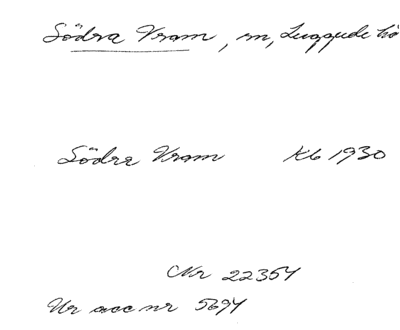 Södra Vram, sn, Luggude hä
Södra Vram Kb 1930
Nr 22354
Ur acc nr 5694